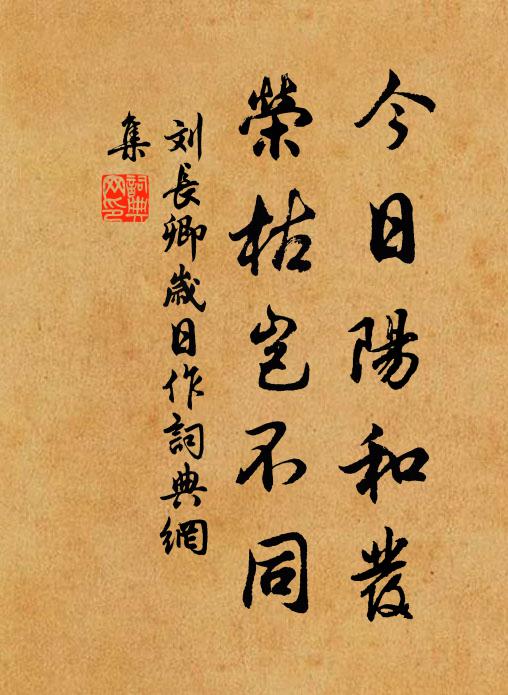 今日陽和發
榮枯岂不同
刘長卿歲日作詞典網
集
詞典网印